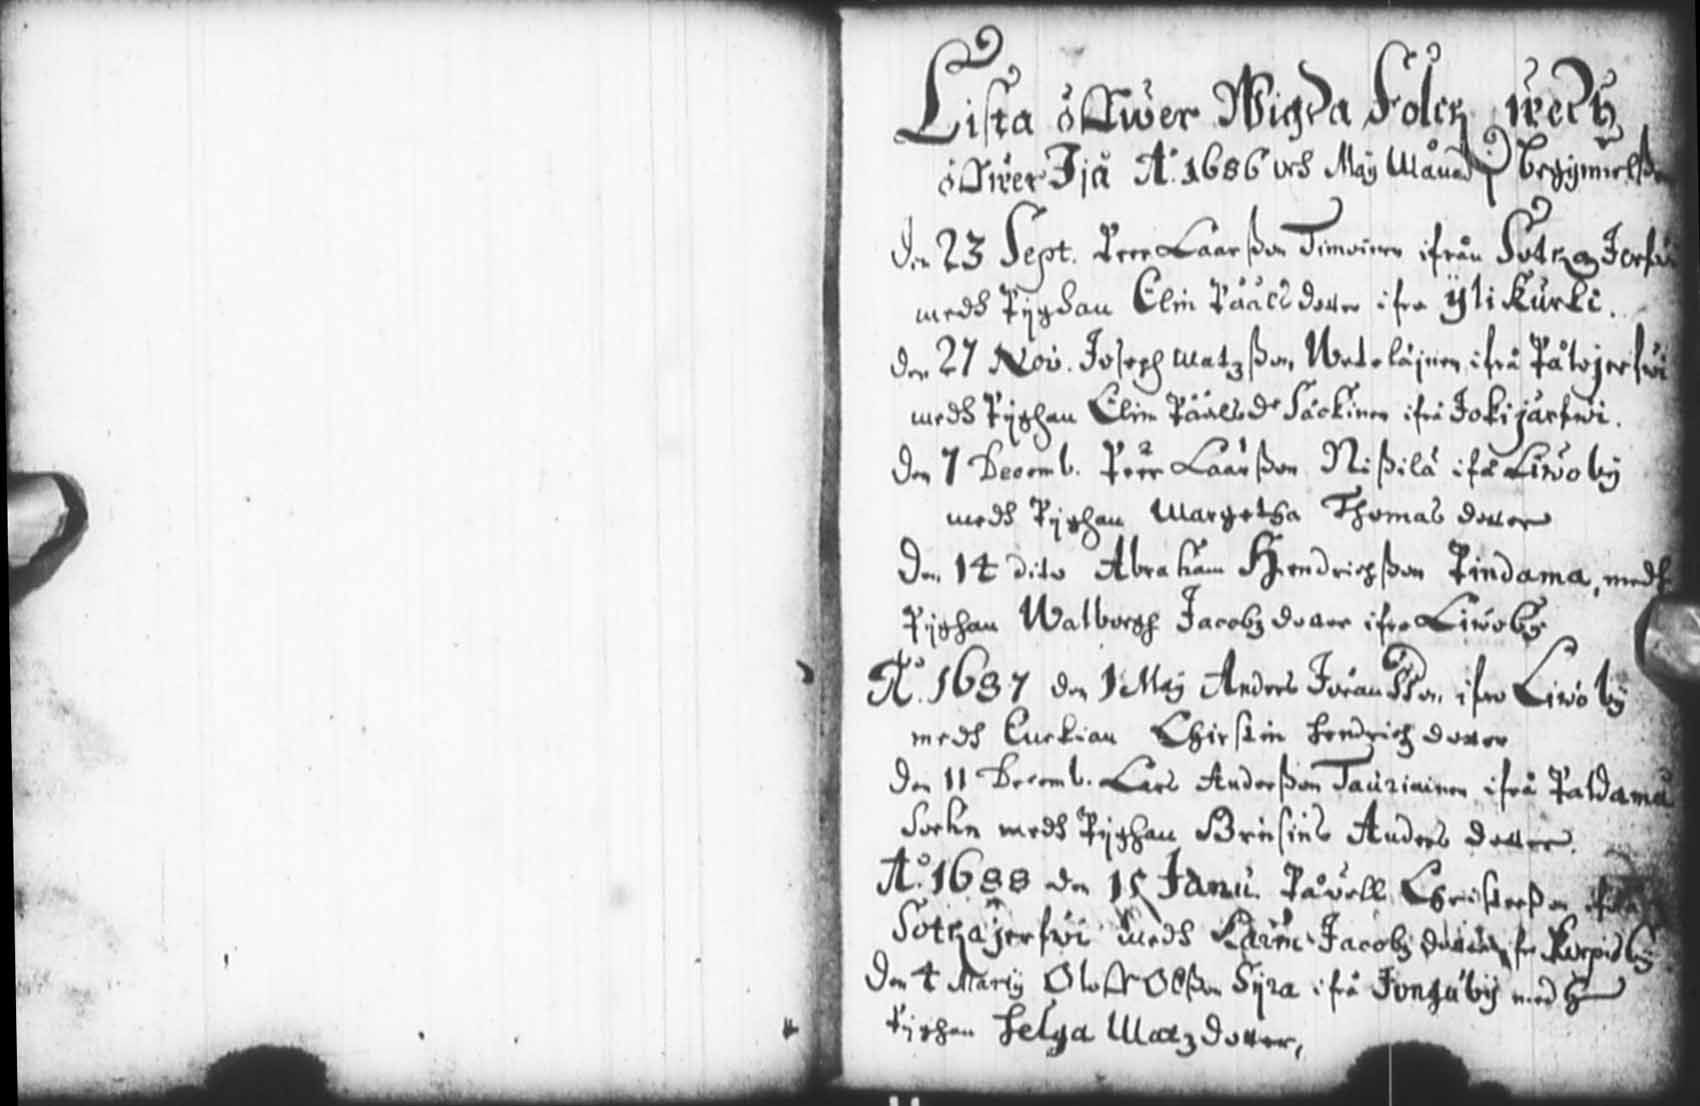 Lista öffwer Wigda Folck wedh
öffwer Ijå A:o 1686 vdh Maij Månad begijnnelßen
Den 23 Sept. Peer Laarßon Timoinen ifrån Sotka Jerfwi
medh Pijghan Elin Påålsdotter ifrå Ylikurki.
den 27 Nov. Joseph Matzßon, Wetelåjnen ifrå Påtojerfwi
medh Pijghan Elin Påålsdr Säckinen ifrå Jokijärfwi.
den 7 Decemb. Peer Laarßon Nißilä ifrå Liwoby
medh Pijghan Margetha Thomas dotter
Den 14 dito Abraham Hendrichßon Pindama, medh
Pijghan Walborgh Jacobz dotter ifrå Liwoby
A:o 1687 den 1 Maij Anders Jöranßon ifrå Liwoby
medh Enckian Chirstin Hendrich dotter
den 11 Decemb. Lars Anderßon Tauriainen ifrå Paldamå
Sochn medh Pijghan Anders dotter.
A:o 1688 den 15 Janu. Påvell Christerßon ifrå
Sotkajerfwi medh Karin Jacobz dotter Korpisby
Den 4 Martij Oloff Olßon Syra ifrå Jonguby medh
Pijghan Helga Matzdotter,